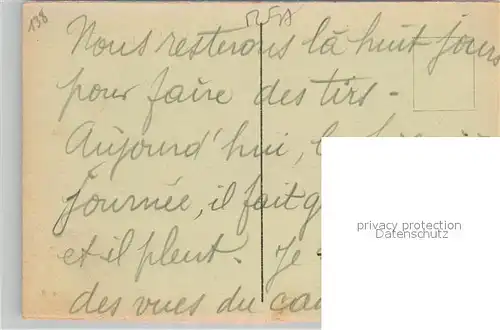 138
Nous resterons là huit jours
pour faire des tirs -
Aujourd'hui,
journée, il fait
et il pleut. Je
des vues du
privacy protection
Datenschutz